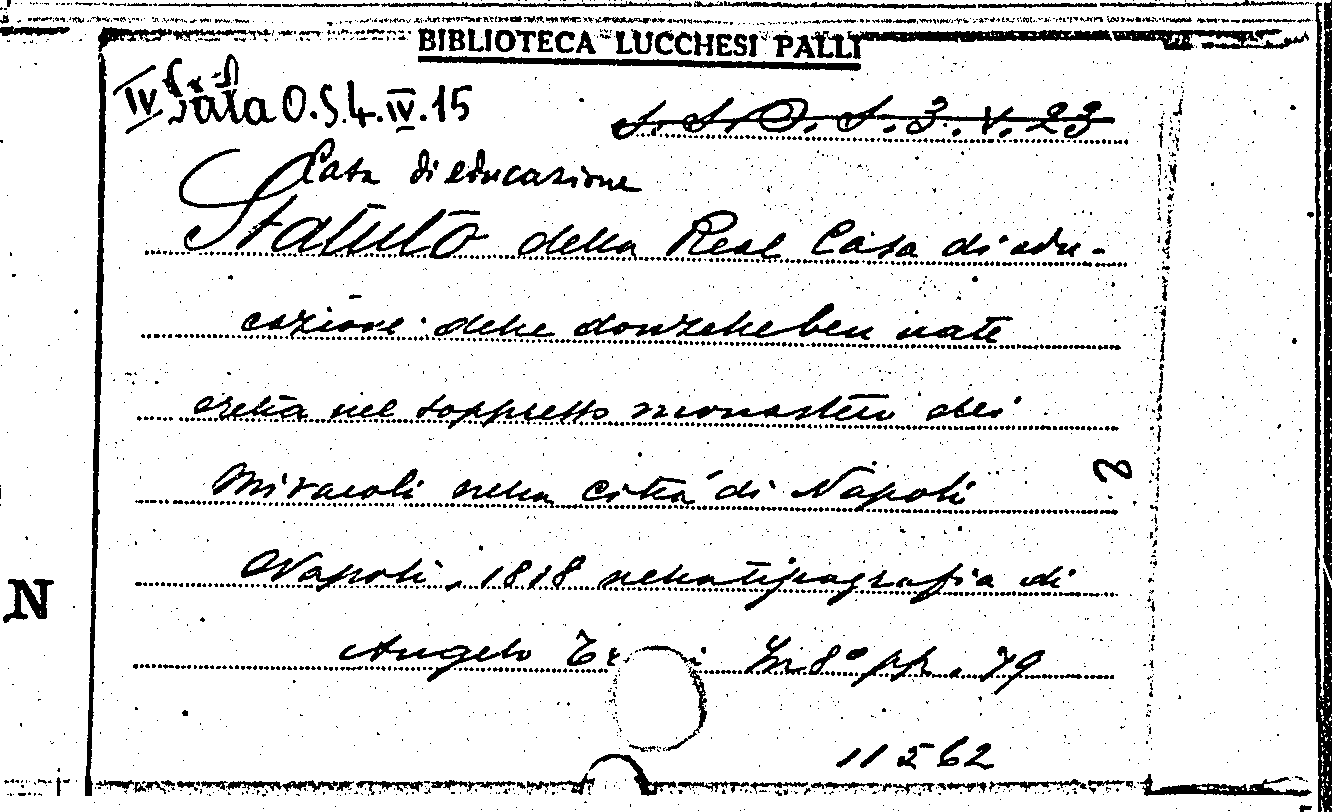 BIBLIOTECA LUCCHESI PALLI
IV Sala O.S.4.IV.15
S. S. O. S. 3. V. 23
Casa di educazione
Statuto della Real Casa di edu-
cazione delle donzelle ben nate
eretta nel soppresso monastero dei
Miracoli nella città di Napoli
Napoli, 1818 nella tipografia di
Angelo In 8° pp. 79
11562
N